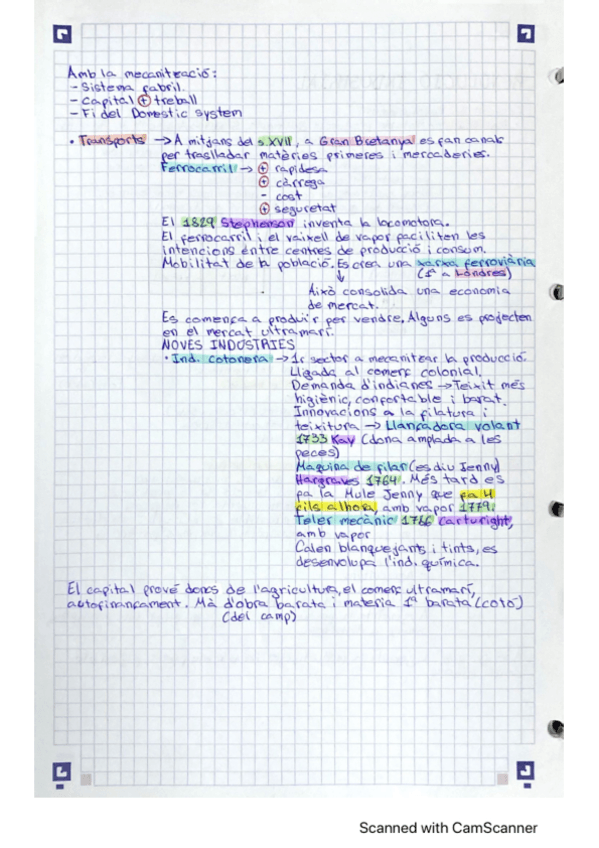 Amb la mecanització:
- Sistema fabril.
- Capital + treball
- Fi del Domestic system
• Transports → A mitjans del s.XVII, a Gran Bretanya es fan canals
per traslladar matèries primeres i mercaderies.
Ferrocarril → + rapidesa
+ càrrega
- cost
+ seguretat
El 1829 Stephenson inventa la locomotora.
El ferrocarril i el vaixell de vapor faciliten les
intencions entre centres de producció i consum.
Mobilitat de la població. Es crea una xarxa ferroviària
(1ª a Londres)
↓
Això consolida una economia
de mercat.
Es comença a produir per vendre. Alguns es projecten
en el mercat ultramarí.
NOVES INDÚSTRIES
• Ind. cotonera → 1r sector a mecanitzar la producció.
Lligada al comerç colonial.
Demanda d'indianes → Teixit més
higiènic, confortable i barat.
Innovacions a la filatura i
teixitura → Llançadora volant
1733 Kay (dona amplada a les
peces)
Maquina de filar (es diu Jenny)
Hargraves 1764. Més tard es
fa la Mule Jenny que fa 4
fils alhora, amb vapor 1779.
Teler mecànic 1786 Carturight,
amb vapor
Calen blanquejants i tints, es
desenvolupa l'ind. química.
El capital prové doncs de l'agricultura, el comerç ultramarí,
autofinançament. Mà d'obra barata i materia 1ª barata (cotó)
(del camp)
Scanned with CamScanner